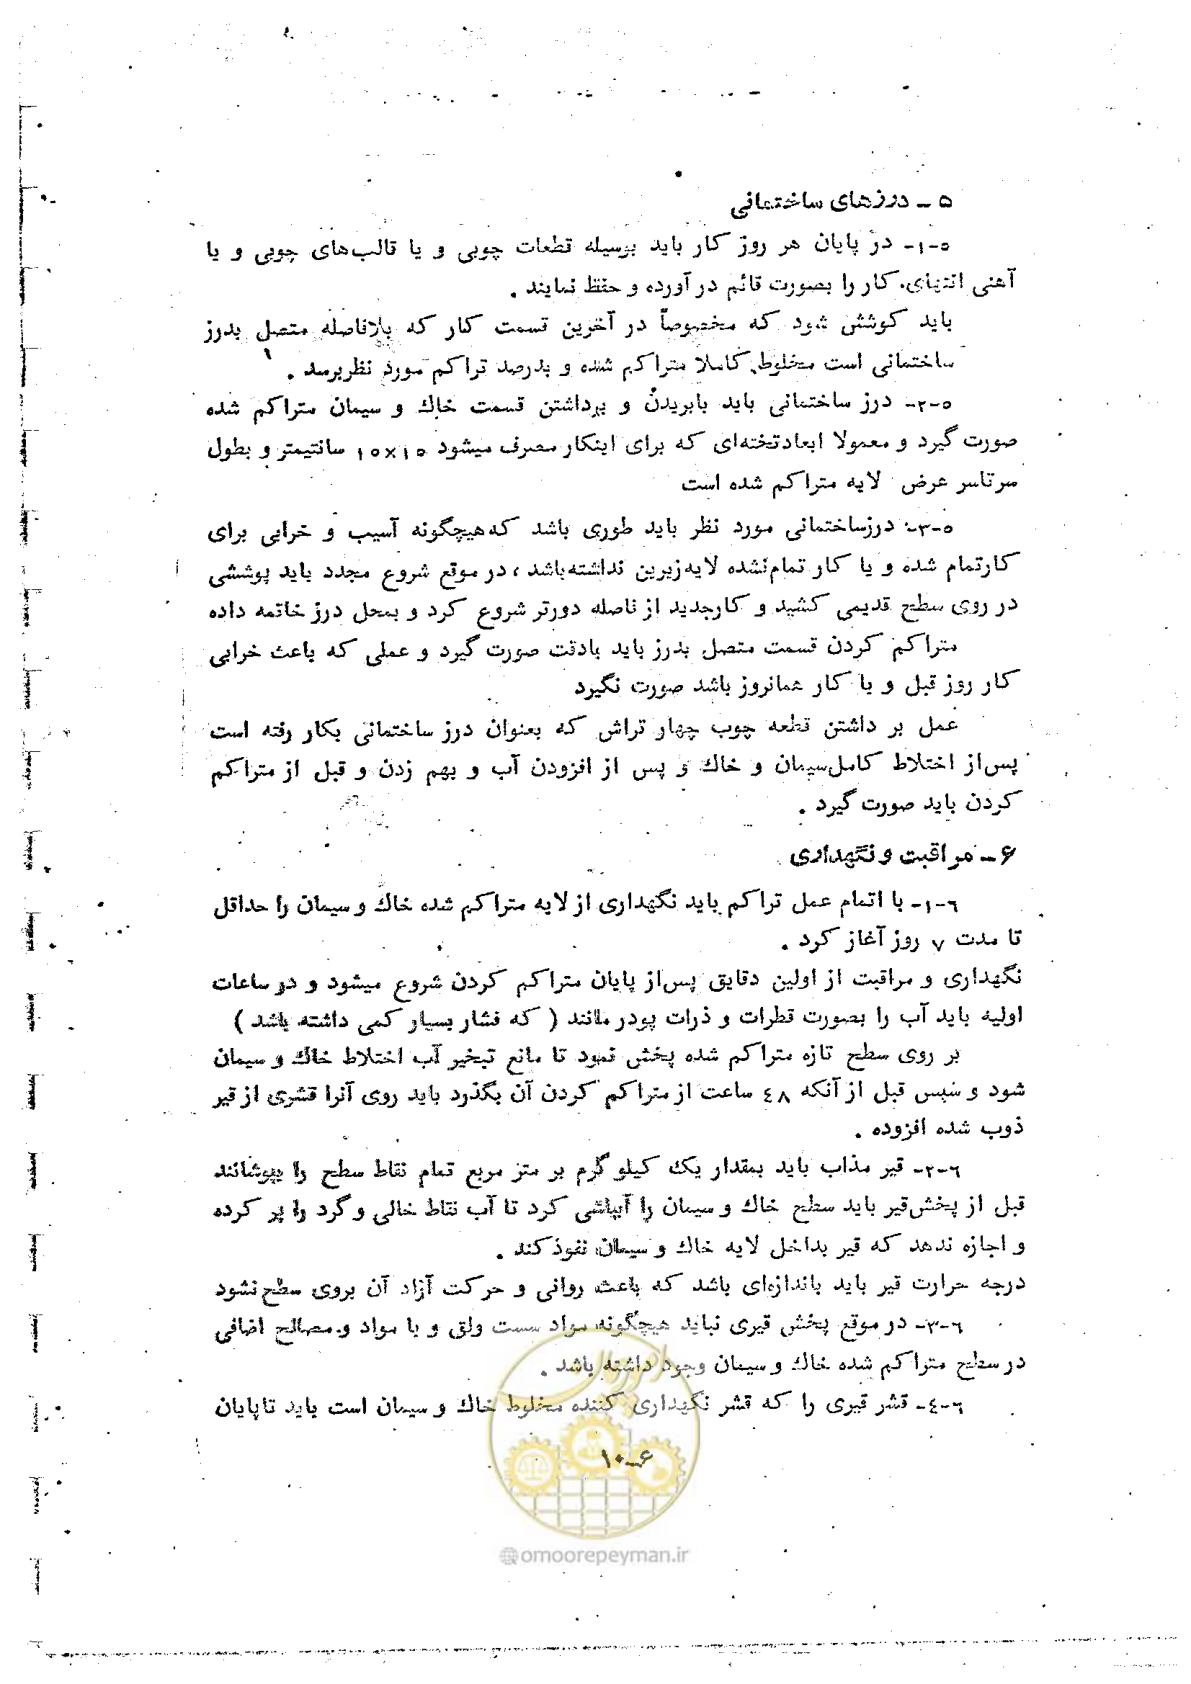 ۵ ـ درزهای ساختمانی
۵-۱- در پایان هر روز کار باید بوسیله قطعات چوبی و یا قالب‌های چوبی و یا
آهنی انتهای کار را بصورت قائم در آورده و حفظ نمایند .
باید کوشش شود که مخصوصاً در آخرین قسمت کار که بلافاصله متصل بدرز
ساختمانی است مخلوط کاملا متراکم شده و بدرصد تراکم مورد نظربرسد .
۵-۲- درز ساختمانی باید بابریدن و برداشتن قسمت خاك و سیمان متراکم شده
صورت گیرد و معمولا ابعادتخته‌ای که برای اینکار مصرف میشود ۱۰×۱۰ سانتیمتر و بطول
سرتاسر عرض لایه متراکم شده است
۵-۳- درزساختمانی مورد نظر باید طوری باشد که‌هیچگونه آسیب و خرابی برای
کارتمام شده و یا کار تمام‌نشده لایه‌زیرین نداشته‌باشد ، در موقع شروع مجدد باید پوششی
در روی سطح قدیمی کشید و کارجدید از فاصله دورتر شروع کرد و بمحل درز خاتمه داده
متراکم کردن قسمت متصل بدرز باید بادقت صورت گیرد و عملی که باعث خرابی
کار روز قبل و یا کار همانروز باشد صورت نگیرد
عمل بر داشتن قطعه چوب چهار تراش که بعنوان درز ساختمانی بکار رفته است
پس‌از اختلاط کامل‌سیمان و خاك و پس از افزودن آب و بهم زدن و قبل از متراکم
کردن باید صورت گیرد .
۶ـ مراقبت و نگهداری
۶-۱- با اتمام عمل تراکم باید نگهداری از لایه متراکم شده خاك و سیمان را حداقل
تا مدت ۷ روز آغاز کرد .
نگهداری و مراقبت از اولین دقایق پس‌از پایان متراکم کردن شروع میشود و در ساعات
اولیه باید آب را بصورت قطرات و ذرات پودر مانند ( که فشار بسیار کمی داشته باشد )
بر روی سطح تازه متراکم شده پخش نمود تا مانع تبخیر آب اختلاط خاك و سیمان
شود و سپس قبل از آنکه ٤٨ ساعت از متراکم کردن آن بگذرد باید روی آنرا قشری از قیر
ذوب شده افزوده .
۶-۲- قیر مذاب باید بمقدار یك کیلو گرم بر متر مربع تمام نقاط سطح را بپوشانند
قبل از پخش‌قیر باید سطح خاك و سیمان را آبپاشی کرد تا آب نقاط خالی و گرد را پر کرده
و اجازه ندهد که قیر بداخل لایه خاك و سیمان نفوذ کند .
درجه حرارت قیر باید باندازه‌ای باشد که باعث روانی و حرکت آزاد آن بروی سطح‌نشود
۶-۳- در موقع پخش قیری نباید هیچگونه مواد سست ولق و یا مواد و مصالح اضافی
در سطح متراکم شده خاك و سیمان وجود داشته باشد .
۶-٤- قشر قیری را که قشر نگهداری کننده مخلوط خاك و سیمان است باید تاپایان
۶ـ۱۰
امورپیمان
@omoorepeyman.ir